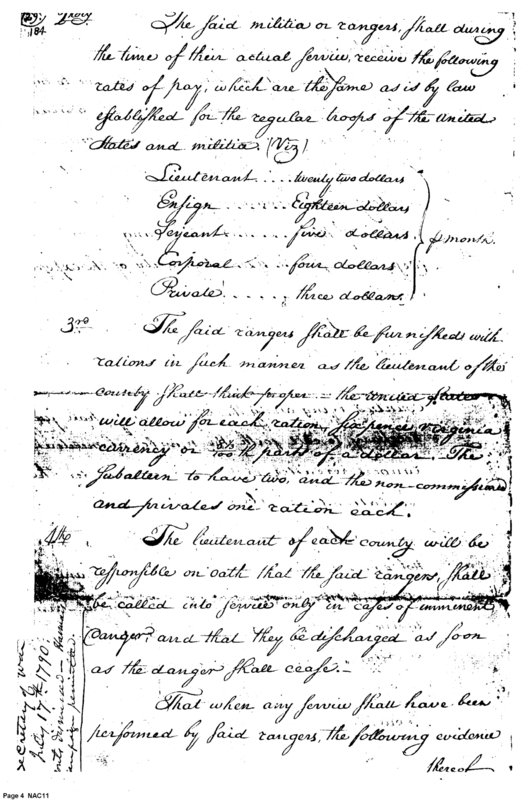 184
The said militia or rangers, shall during
the time of their actual service, receive the following
rates of pay, which are the same as is by law
established for the regular troops of the United
States and militia. (Viz)
Lieutenant .... twenty two dollars
Ensign ...... Eighteen dollars
Serjeant ..... five dollars
Corporal .... four dollars
Private ..... three dollars.
month.
3rd The said rangers shall be furnished with
rations in such manner as the lieutenant of the
county shall think proper – the United States
will allow for each ration, six pence virginia
currency or 8⅓/100th parts of a dollar – The
Subaltern to have two, and the non-commissioned
and privates one ration each.
4th The lieutenant of each county will be
responsible on oath that the said rangers, shall
be called into service only in cases of imminent
danger, and that they be discharged as soon
as the danger shall cease. –
That when any service shall have been
performed by said rangers, the following evidence
thereof
Secretary of War
July 17th 1790
Page 4 NAC11